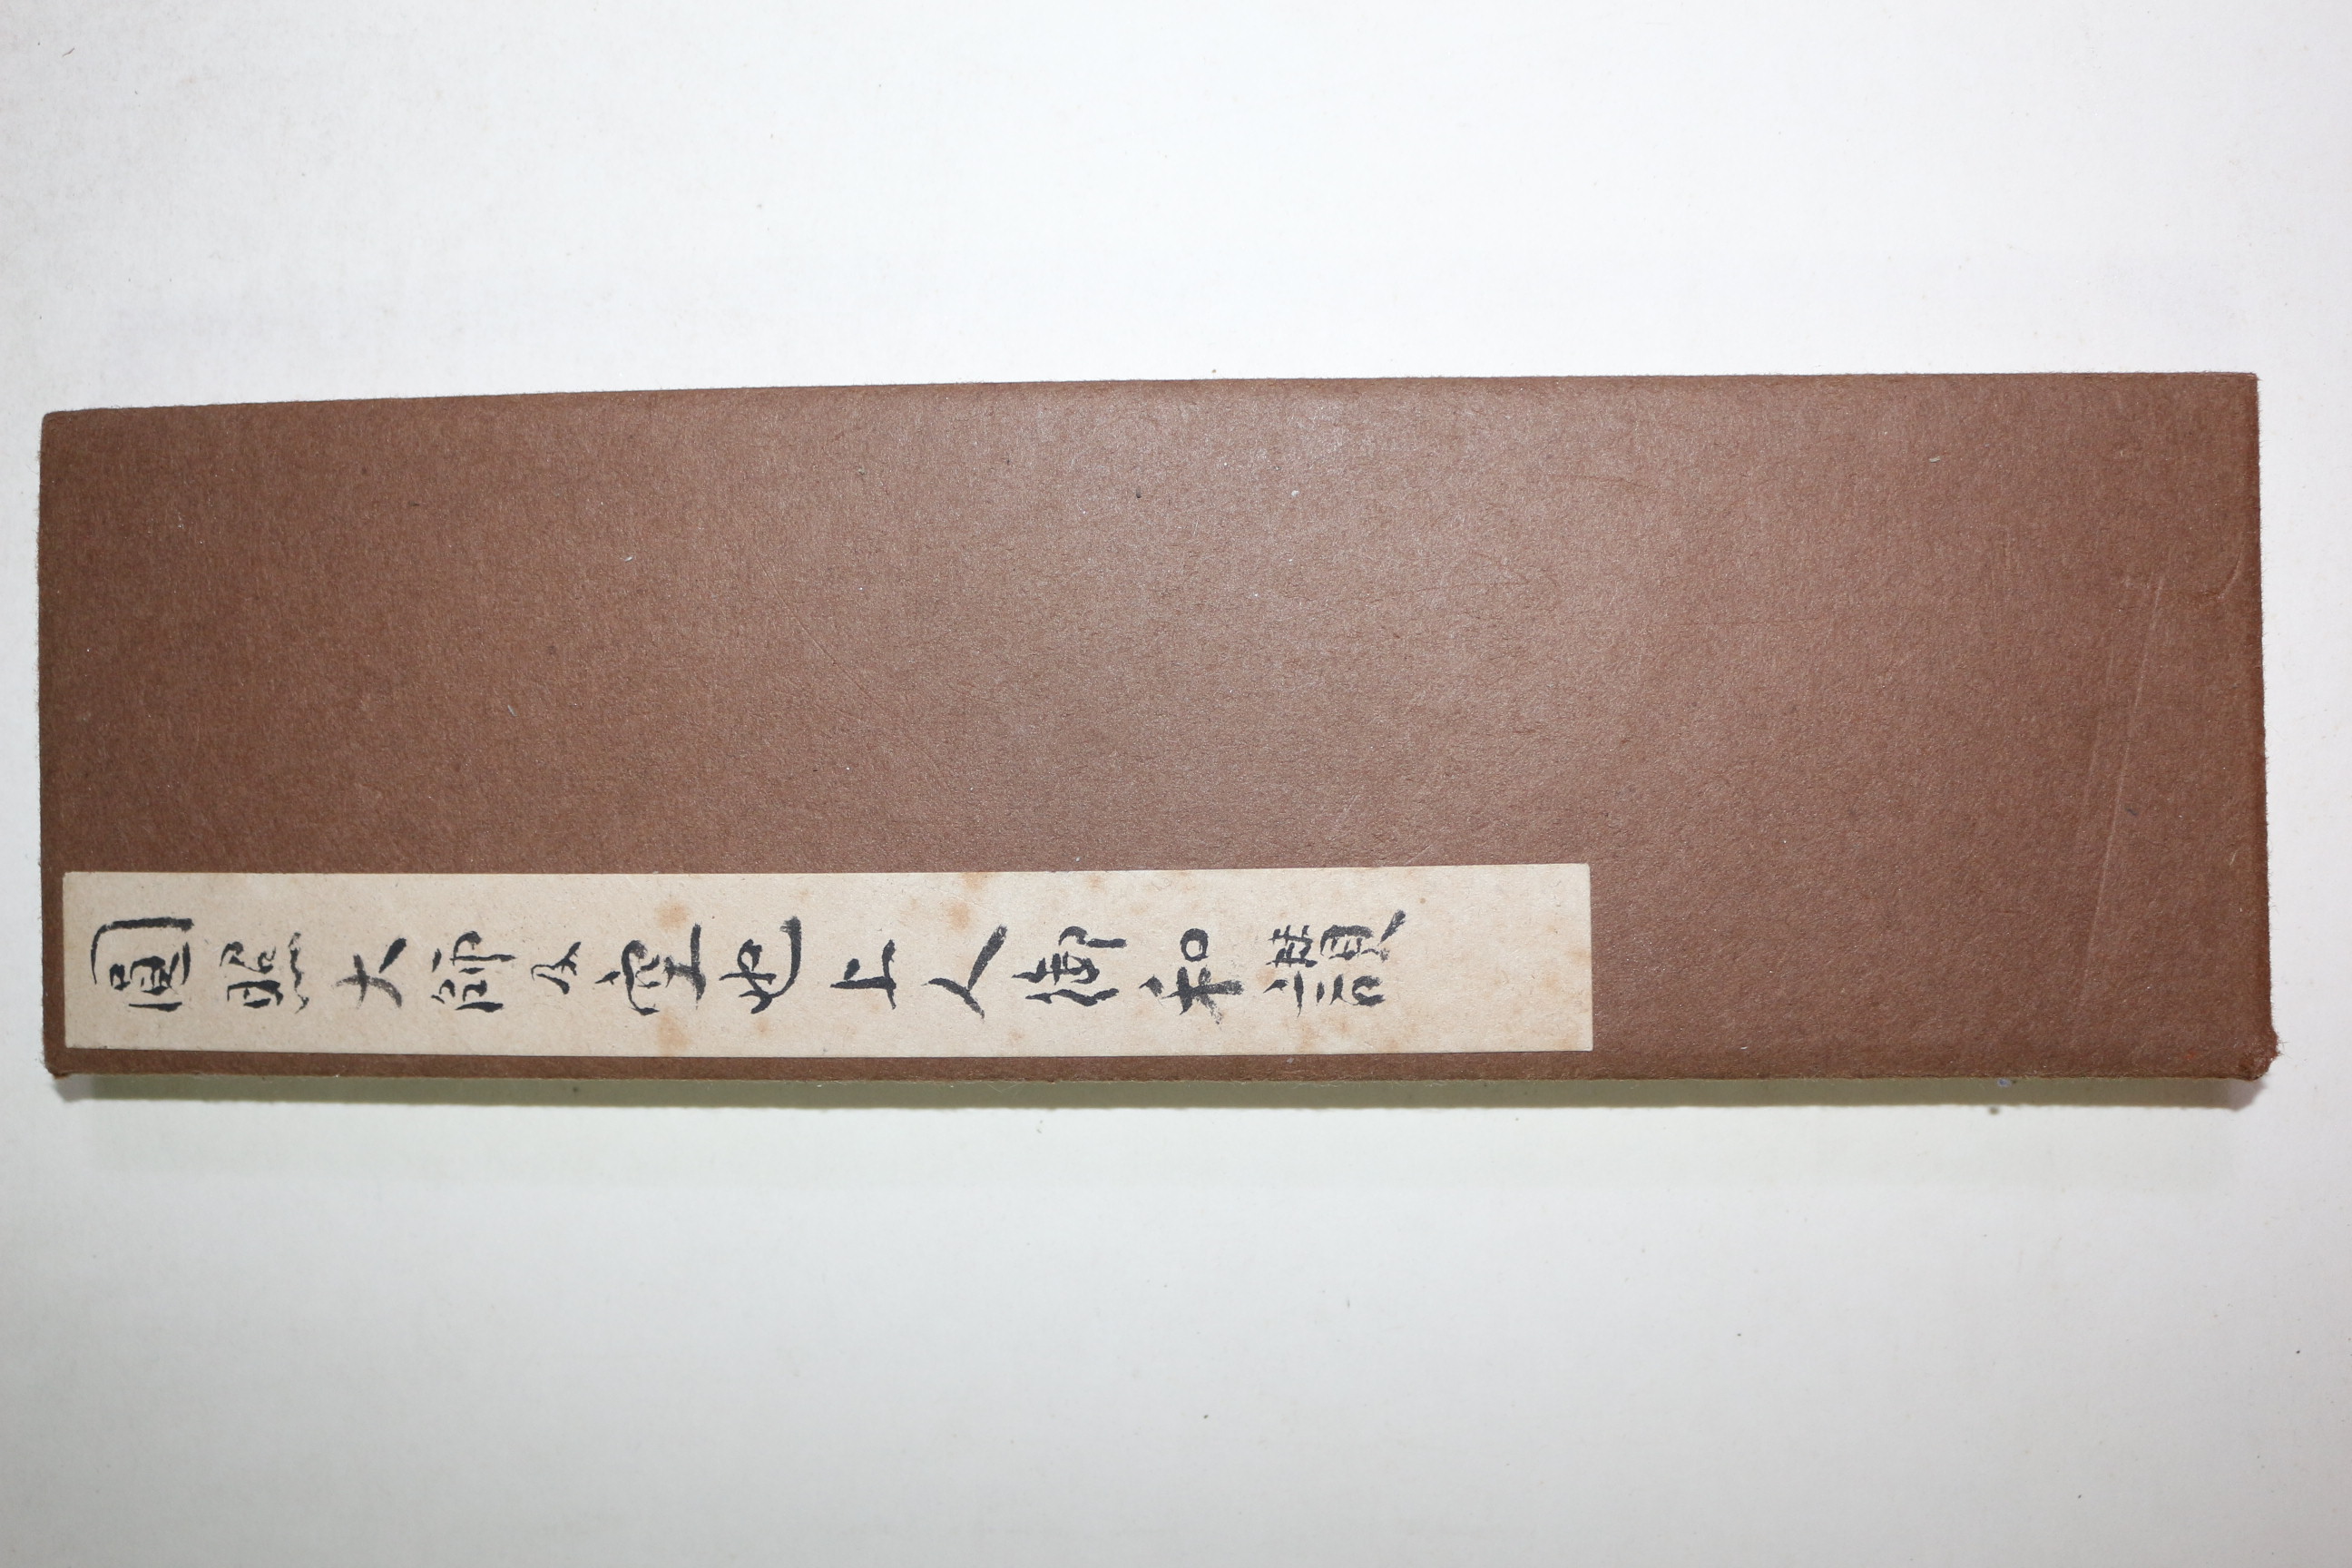 圓照大師及空也上人御和讃